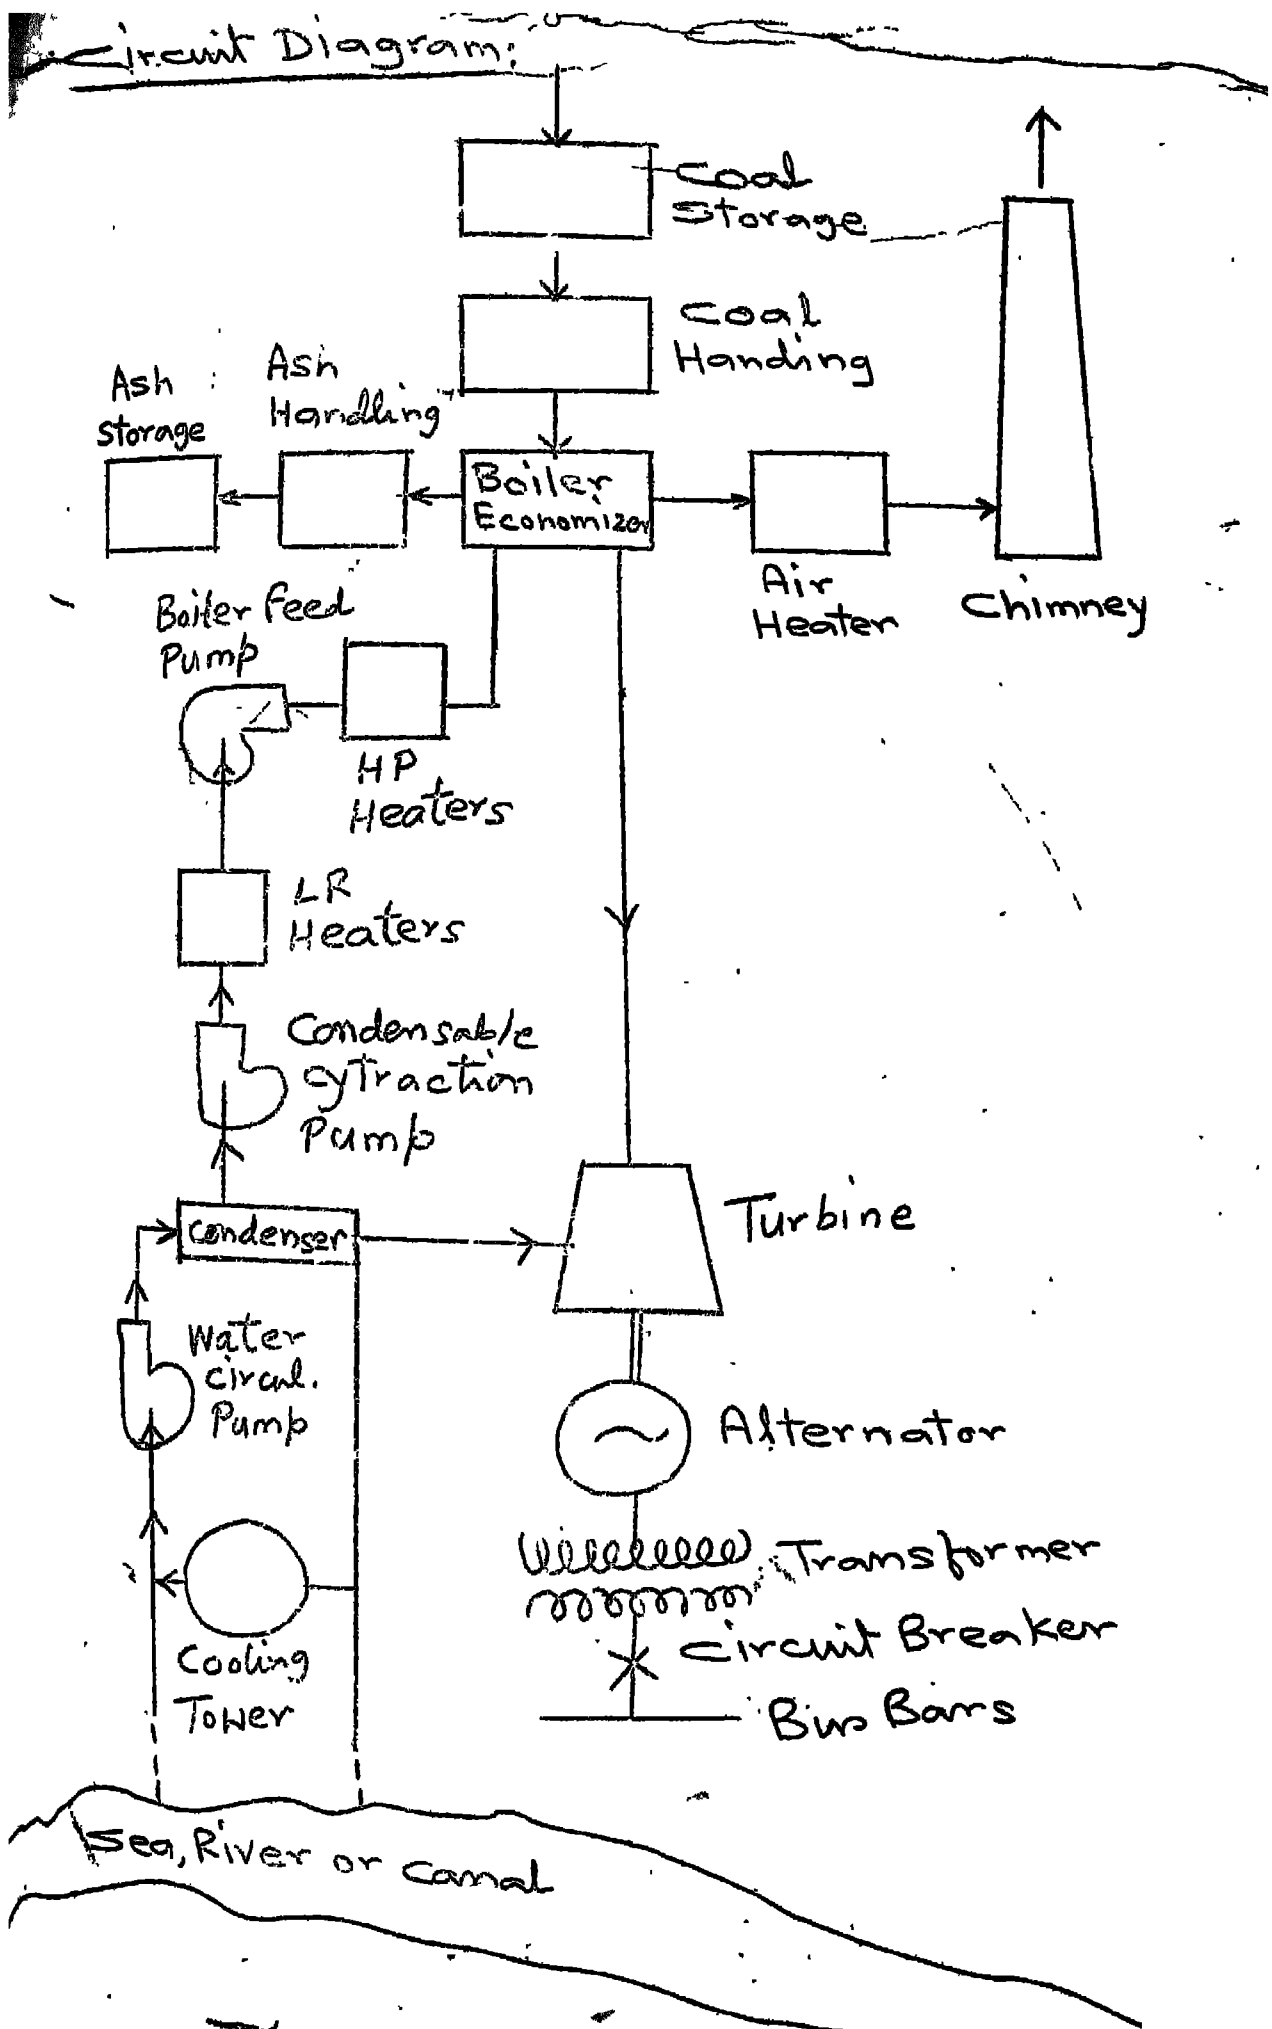 Circuit Diagram:
Coal
Storage
Coal
Handing
Ash
Handling
Ash
Storage
Boiler
Economizor
Air
Heater
Chimney
Boiler feed
Pump
HP
Heaters
LR
Heaters
Condensable
cytraction
Pump
Condenser
Turbine
Water
circul.
Pump
Alternator
Transformer
Circuit Breaker
Bus Bars
Cooling
Tower
Sea, River or Canal